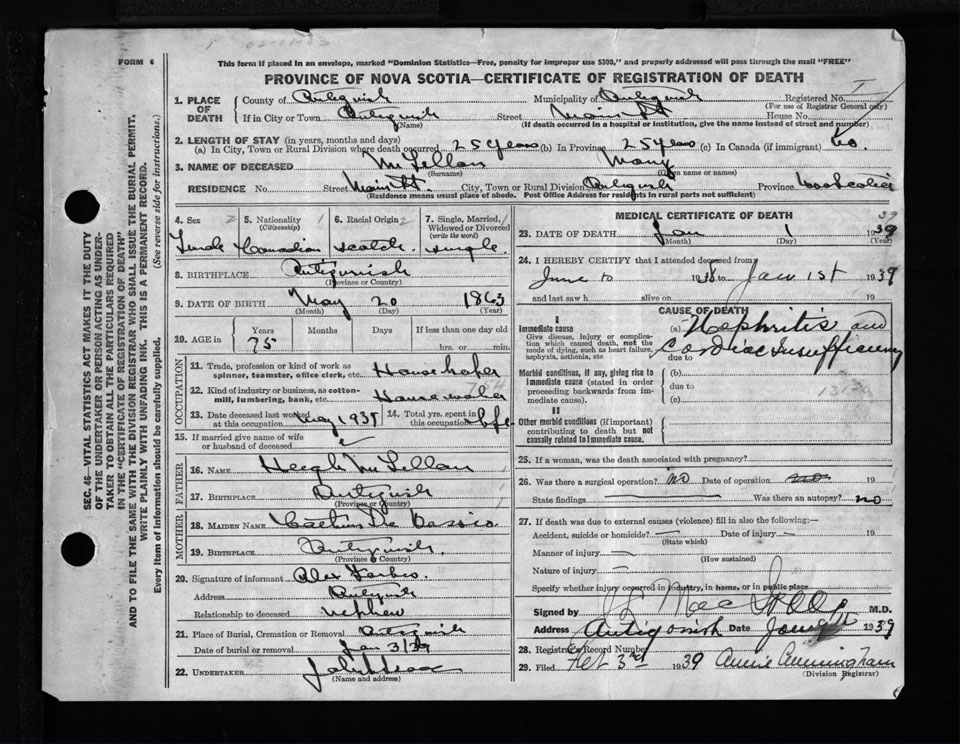 FORM 6
This form if placed in an envelope, marked "Dominion Statistics—Free, penalty for improper use $300," and properly addressed will pass through the mail "FREE"
PROVINCE OF NOVA SCOTIA—CERTIFICATE OF REGISTRATION OF DEATH
1. PLACE OF DEATH
County of Antigonish Municipality of Antigonish Registered No.
(For use of Registrar General only)
If in City or Town Antigonish Street Main St. House No.
(Name) (If death occurred in a hospital or institution, give the name instead of street and number)
2. LENGTH OF STAY (in years, months and days)
(a) In City, Town or Rural Division where death occurred 25 years (b) In Province 25 years (c) In Canada (if immigrant)
3. NAME OF DECEASED McLellan Mary
(Surname) (Given name or names)
RESIDENCE No. Street Main St. City, Town or Rural Division Antigonish Province Nova Scotia
(Residence means usual place of abode. Post Office Address for residents in rural parts not sufficient)
4. Sex
Female
5. Nationality
(Citizenship)
Canadian
6. Racial Origin
Scotch
7. Single, Married, Widowed or Divorced
(write the word)
single
8. BIRTHPLACE Antigonish
(Province or Country)
9. DATE OF BIRTH May 20 1863
(Month) (Day) (Year)
10. AGE in
Years Months Days If less than one day old
75 hrs. or min.
OCCUPATION
11. Trade, profession or kind of work as spinner, teamster, office clerk, etc. Housekeeper
12. Kind of industry or business, as cotton-mill, lumbering, bank, etc.
13. Date deceased last worked at this occupation
14. Total yrs. spent in this occupation life
15. If married give name of wife or husband of deceased
FATHER
16. NAME Hugh McLellan
17. BIRTHPLACE Antigonish
(Province or Country)
MOTHER
18. MAIDEN NAME
19. BIRTHPLACE Antigonish
(Province or Country)
20. Signature of informant Alex
Address Antigonish
Relationship to deceased nephew
21. Place of Burial, Cremation or Removal Antigonish
Date of burial or removal Jan 3/39
22. UNDERTAKER
(Name and address)
MEDICAL CERTIFICATE OF DEATH
23. DATE OF DEATH Jan 1 1939
(Month) (Day) (Year)
24. I HEREBY CERTIFY that I attended deceased from
June 10 1938 to Jan 1st 1939
and last saw h alive on 19
CAUSE OF DEATH
I
Immediate cause
Give disease, injury or complication which caused death, not the mode of dying, such as heart failure, asphyxia, asthenia, etc
(a) Nephritis and
Cardiac Insufficiency
due to
Morbid conditions, if any, giving rise to immediate cause (stated in order proceeding backwards from immediate cause).
(b)
due to
(c)
II
Other morbid conditions (if important) contributing to death but not causally related to immediate cause.
25. If a woman, was the death associated with pregnancy?
26. Was there a surgical operation? No Date of operation no
State findings Was there an autopsy? no
27. If death was due to external causes (violence) fill in also the following:—
Accident, suicide or homicide? Date of injury 19
(State which)
Manner of injury
(How sustained)
Nature of injury
Specify whether injury occurred in industry, in home, or in public place
Signed by M.D.
Address Antigonish Date 1939
28. Registrar's Record Number
29. Filed Feb 3rd 1939 Annie Cunningham
(Division Registrar)
SEC. 46— VITAL STATISTICS ACT MAKES IT THE DUTY
OF THE UNDERTAKER OR PERSON ACTING AS UNDER-
TAKER TO OBTAIN ALL THE PARTICULARS REQUIRED
IN THE "CERTIFICATE OF REGISTRATION OF DEATH"
AND TO FILE THE SAME WITH THE DIVISION REGISTRAR WHO SHALL ISSUE THE BURIAL PERMIT.
WRITE PLAINLY WITH UNFADING INK. THIS IS A PERMANENT RECORD.
Every item of information should be carefully supplied. (See reverse side for instructions.)